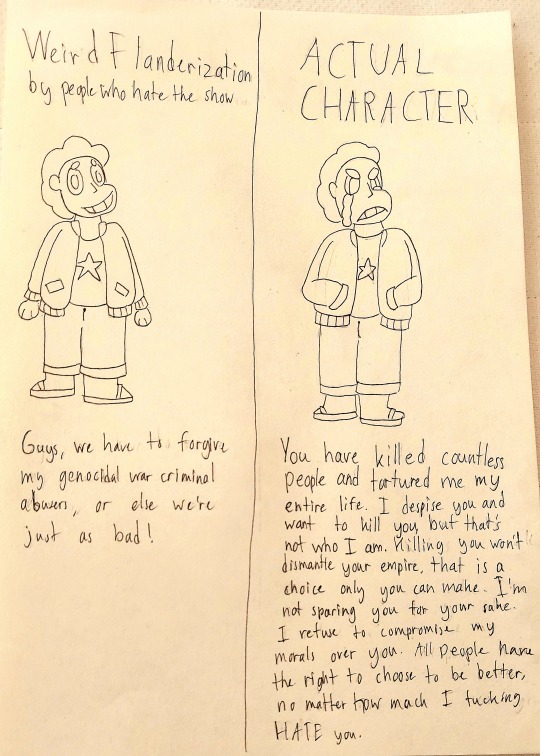 Weird Flanderization
by people who hate the show
Guys, we have to forgive
my genocidal war criminal
abusers, or else we're
just as bad!
ACTUAL
CHARACTER
You have killed countless
people and tortured me my
entire life. I despise you and
want to kill you, but that's
not who I am. Killing you won't
dismantle your empire, that is a
choice only you can make. I'm
not sparing you for your sake.
I refuse to compromise my
morals over you. All people have
the right to choose to be better,
no matter how much I fucking
HATE you.